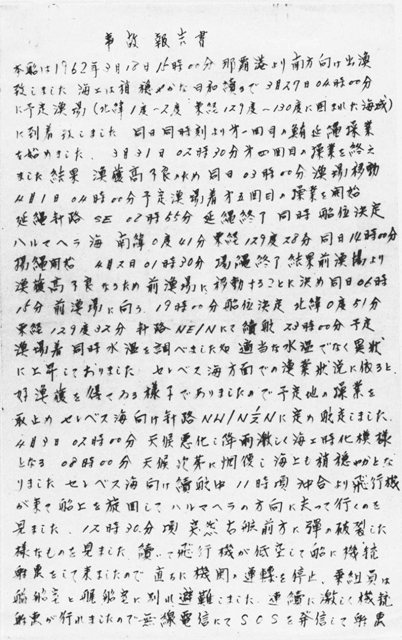 事故報告書
本船は1962年3月18日15時00分 那覇港より南方向け出漁
致しました 海上は稍穏かな日和續きで 3月27日04時00分
に予定漁場(北緯1度〜2度 東経129度〜130度に囲まれた海域)
に到着致しました 同日同時刻より第一回目の鮪延縄操業
を始めました. 3月31日 02時30分第四回目の操業を終え
ました結果 漁獲高不良のため同日03時00分 漁場移動
4月1日 04時00分予定漁場着第五回目の操業を開始
延縄針路 SE 08時55分 延縄終了 同時 船位決定
ハルマヘラ海 南緯0度41分東経129度28分 同日14時00分
揚縄開始 4月2日01時30分 揚縄終了結果前漁場より
漁獲高不良なるため前漁場に移動することに決め同日06時
15分 前漁場に向う. 19時00分船位決定 北緯0度51分
東経129度32分 針路 NE/Nにて續航 23時00分 予定
漁場着 同時水温を調べました処 適当な水温でなく異状
に上昇しておりました セレベス海方面での漁業状況に依ると.
好漁獲を得てゐる様子でありましたので予定地の操業を
取止め セレベス海向け針路 NW/N½Nに定め航走しました.
4月3日 02時00分 天候悪化し降雨激しく海上時化模様
となる 08時00分 天候次第に恢復し海上も稍穏かとな
りました セレベス海向け續航中 11時頃 沖合より飛行機
が来て船上を旋回してハルマヘラの方向に去って行くのを
見ました. 12時30分頃 突然右舷前方に弾の破裂した
様なものを見ました. 續いて飛行機が低空して船に機銃
射撃をして来ましたので 直ちに機関の運轉を停止. 乗組員は
船室と 船室に別れ避難しました. 連續に激しく機銃
射撃が行れましたので無線電信にてSOSを発信して射撃